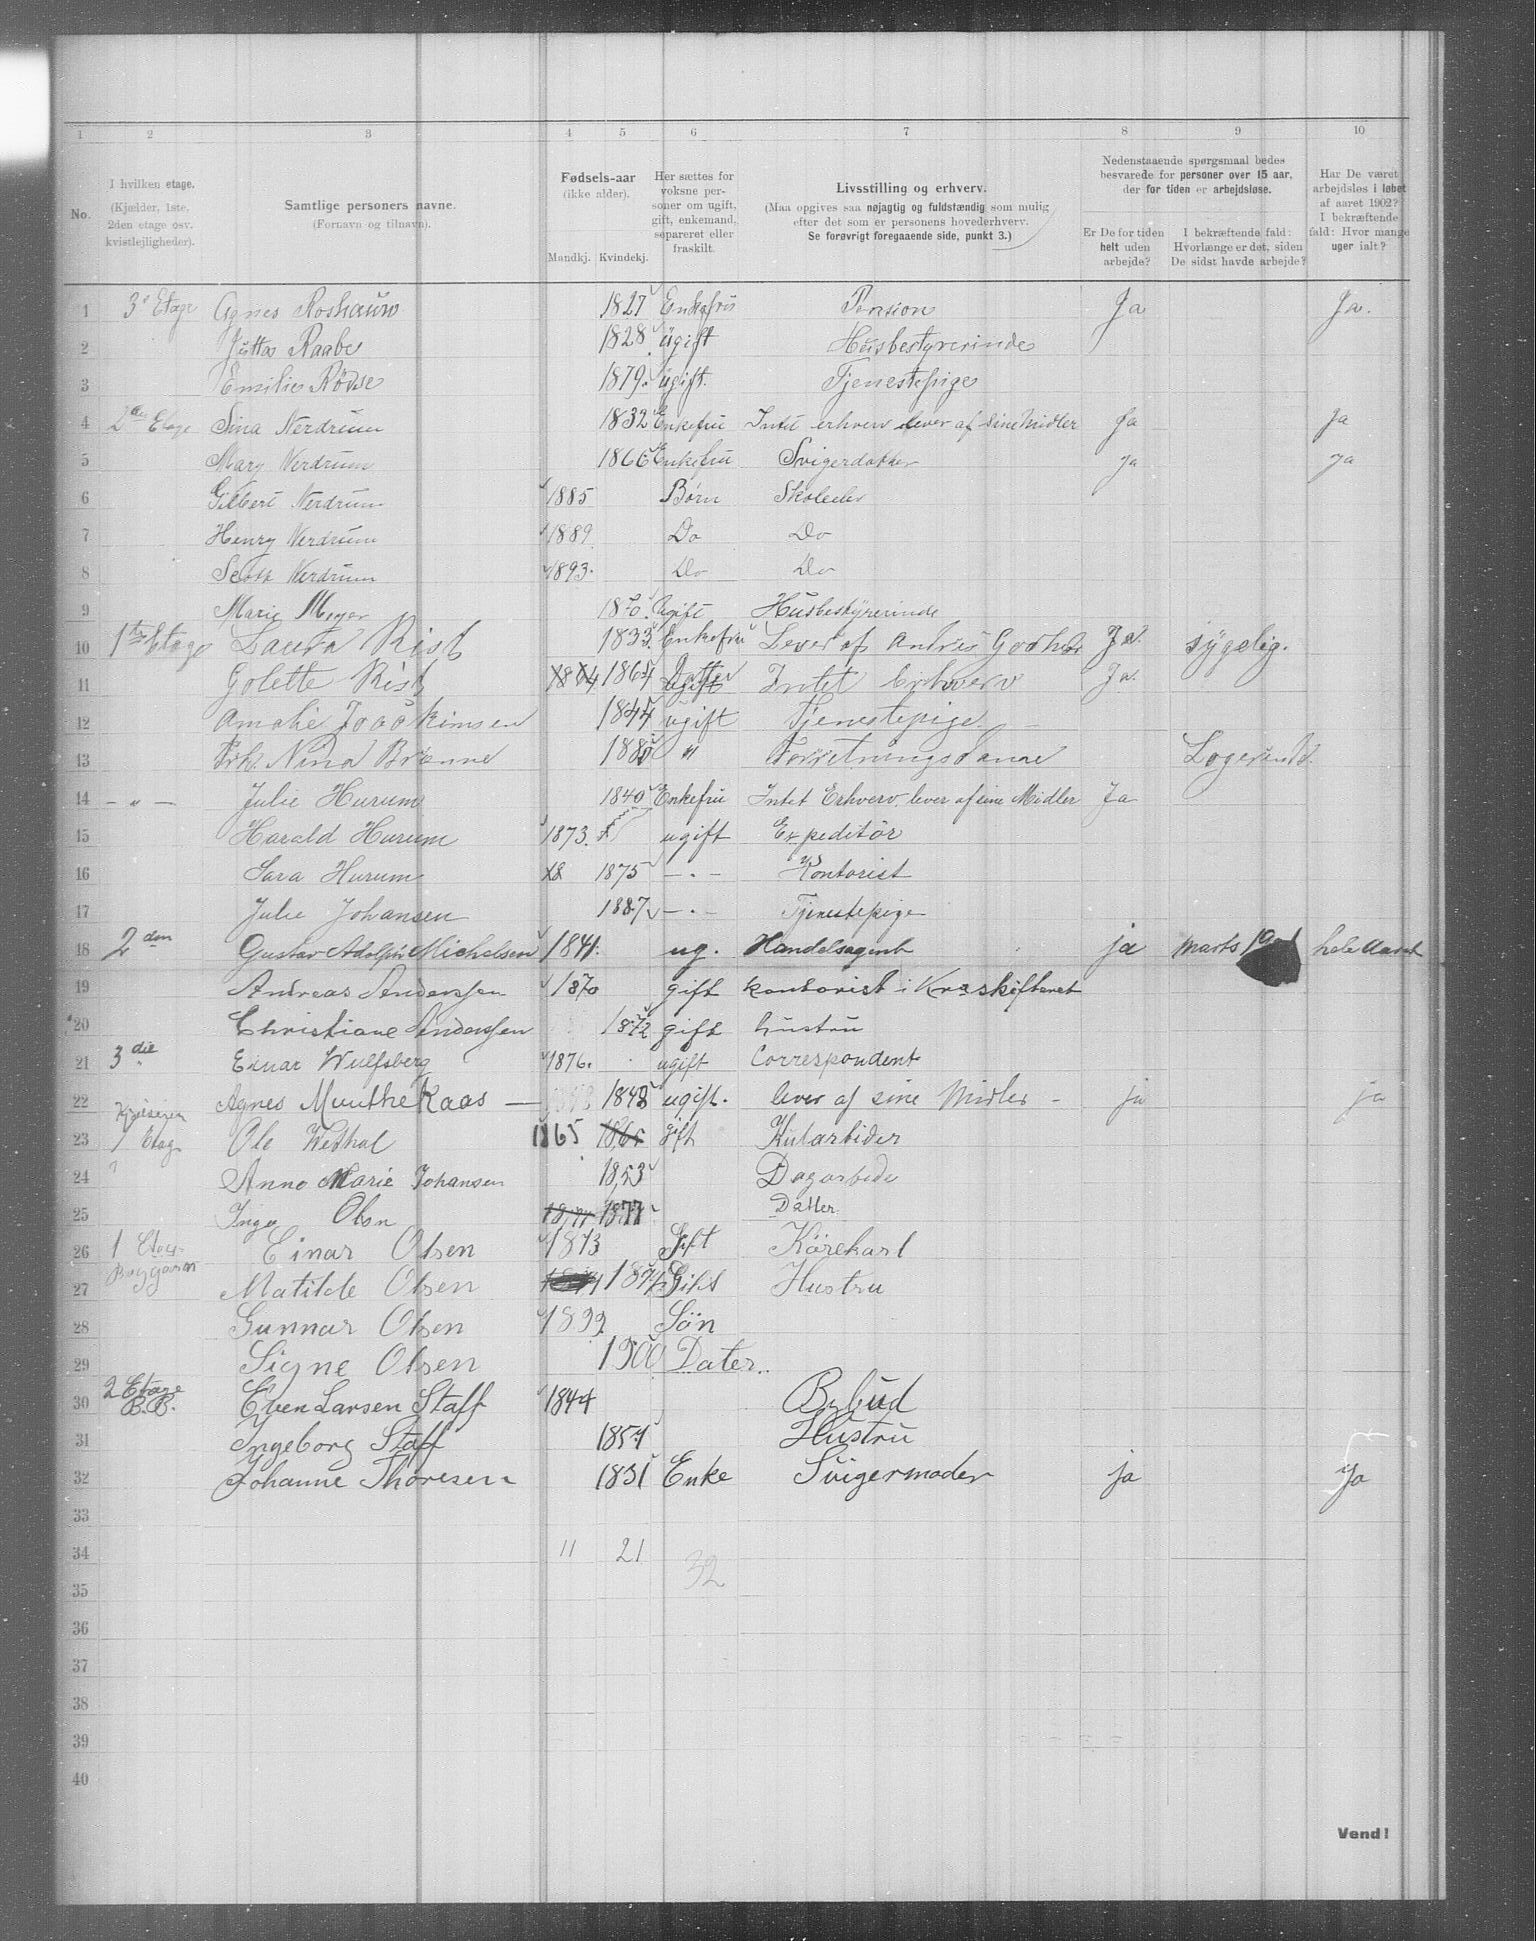 1 2 3 4 5 6 7 8 9 10
No.
I hvilken etage.
(Kjælder, 1ste,
2den etage osv.
kvistlejligheder).
Samtlige personers navne.
(Fornavn og tilnavn).
Fødsels-aar
(ikke alder).
Mandkj. Kvindekj.
Her sættes for
voksne per-
soner om ugift,
gift, enkemand,
separeret eller
fraskilt.
Livsstilling og erhverv.
(Maa opgives saa nøjagtig og fuldstændig som mulig
efter det som er personens hovederhverv.
Se forøvrigt foregaaende side, punkt 3.)
Nedenstaaende spørgsmaal bedes
besvarede for personer over 15 aar,
der for tiden er arbejdsløse.
Er De for tiden
helt uden
arbejde?
I bekræftende fald:
Hvorlænge er det, siden
De sidst havde arbejde?
Har De været
arbejdsløs i løbet
af aaret 1902?
I bekræftende
fald: Hvor mange
uger ialt?
1 3die Etage Agnes Roshauw 1827 Enkefru Pension Ja Ja.
2 Jutta Raabe 1828 ugift Husbestyrerinde
3 Emilie Rødse 1879. ugift. Tjenestepige
4 2den Etage Sina Nerdrum 1832 Enkefru Intet erhverv lever af sine Midler Ja Ja
5 Mary Nerdrum 1866 Enkefru Svigerdatter Ja Ja
6 Gilbert Nerdrum 1885 Børn Skoleelev
7 Henry Nerdrum 1889 Do Do
8 Scott Nerdrum 1893. Do Do
9 Marie Meyer 1870. Ugift Husbestyrerinde
10 1ste Etage Laura Rist 1833. Enkefru Lever af Andres Godhed Ja. sygelig.
11 Golette Rist 1864 Datter ugift Intet Erhverv Ja.
12 Amalie Joackimsen 1844 ugift Tjenestepige
13 Frk. Nina Brænne 1880 " Forretningsdame Logerende.
14 – " – Julie Hurum 1840 Enkefru Intet Erhverv, lever af sine Midler Ja
15 Harald Hurum 1873. ugift Expeditør
16 Sara Hurum 18 1875 – . – Kontorist
17 Julie Johansen 1887 – . – Tjenestepige
18 2den Gustav Adolph Michelsen 1841. ug. Handelsagent ja Marts hele Aaret
19 Andreas Anderssen 1870 gift kontorist i Kra skifteret
20 Christiane Anderssen 1872 gift hustru
21 3die Einar Wulfsberg 1876. ugift Correspondent
22 Agnes Munthe Kaas — 1848 ugift. lever af sine Midler - ja ja
23 1 Etag Ole Westhal 1865 gift Kularbider
24 Anne Marie Johansen 1853 Dagarbede
25 Inga Olsn 1877 Datter
26 1 Etag Einar Olsen 1873 Gift Kørekarl
27 Baggaarn Matilde Olsen 1874 Gift Hustru
28 Gunnar Olsen 1899 Søn
29 Signe Olsen 1900 Dater..
30 2 Etage B.B. Even Larsen Staff 1844 Bybud
31 Ingeborg Staff 1857 Hustru
32 Johanne Thoresen 1831 Enke Svigermoder ja ja
33
34 11 21
32
35
36
37
38
39
40
Vend!